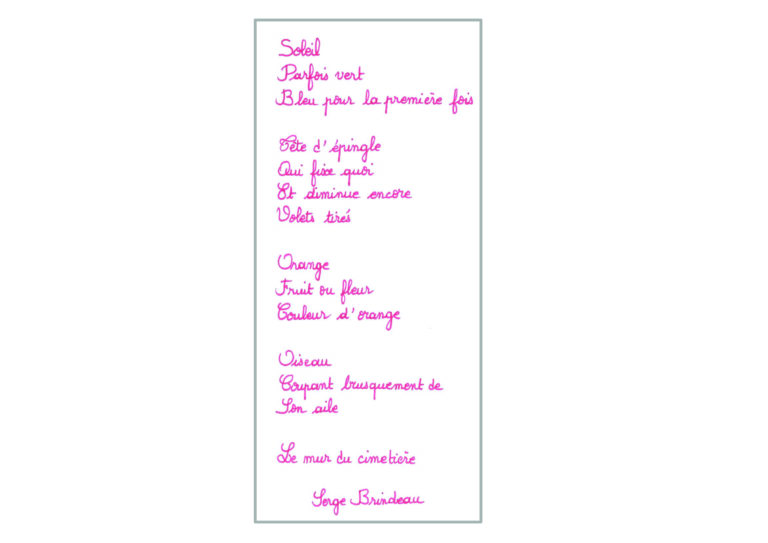 Soleil
Parfois vert
Bleu pour la première fois
Tête d'épingle
Qui fixe quoi
Et diminue encore
Volets tirés
Orange
Fruit ou fleur
Couleur d'orange
Oiseau
Coupant brusquement de
Son aile
Le mur du cimetière
Serge Brindeau